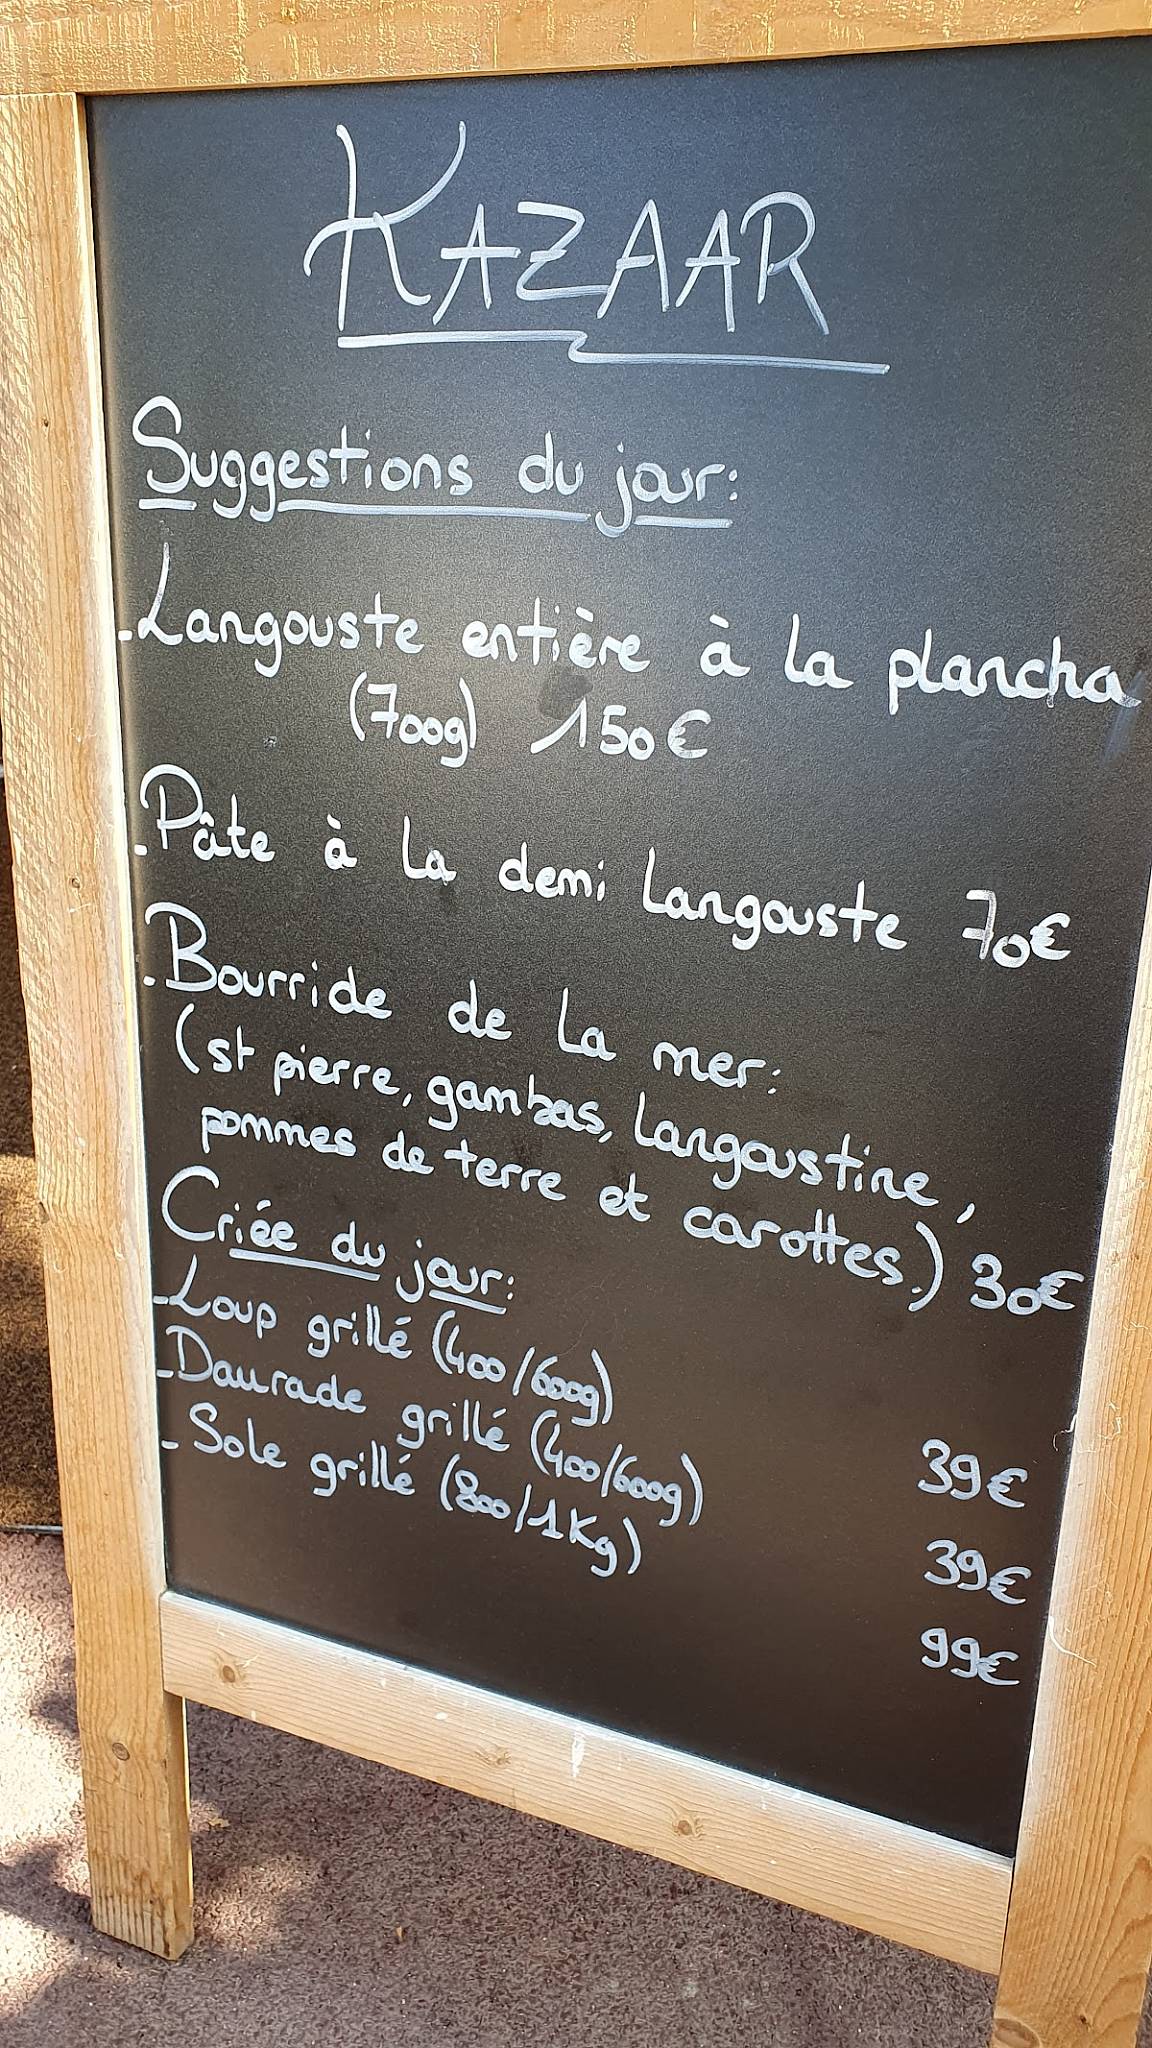 KAZAAR
Suggestions du jour:
-Langouste entière à la plancha
(700g) 150€
-Pâte à la demi langouste 70€
-Bourride de la mer:
(st pierre, gambas, langoustine,
pommes de terre et carottes.) 30€
Criée du jour:
-Loup grillé (400/600g) 39€
-Daurade grillé (400/600g) 39€
- Sole grillé (800/1Kg) 99€